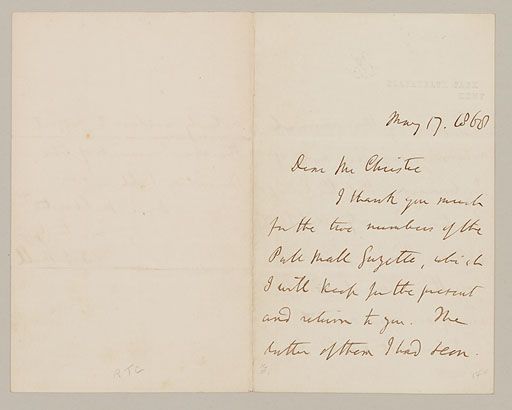 BLACKHEATH PARK
KENT
May 17. 1868
Dear Mr Christie
I thank you much
for the two numbers of the
Pall Mall Gazette, which
I will keep for the present
and return to you. The
latter of them I had seen.
RTC